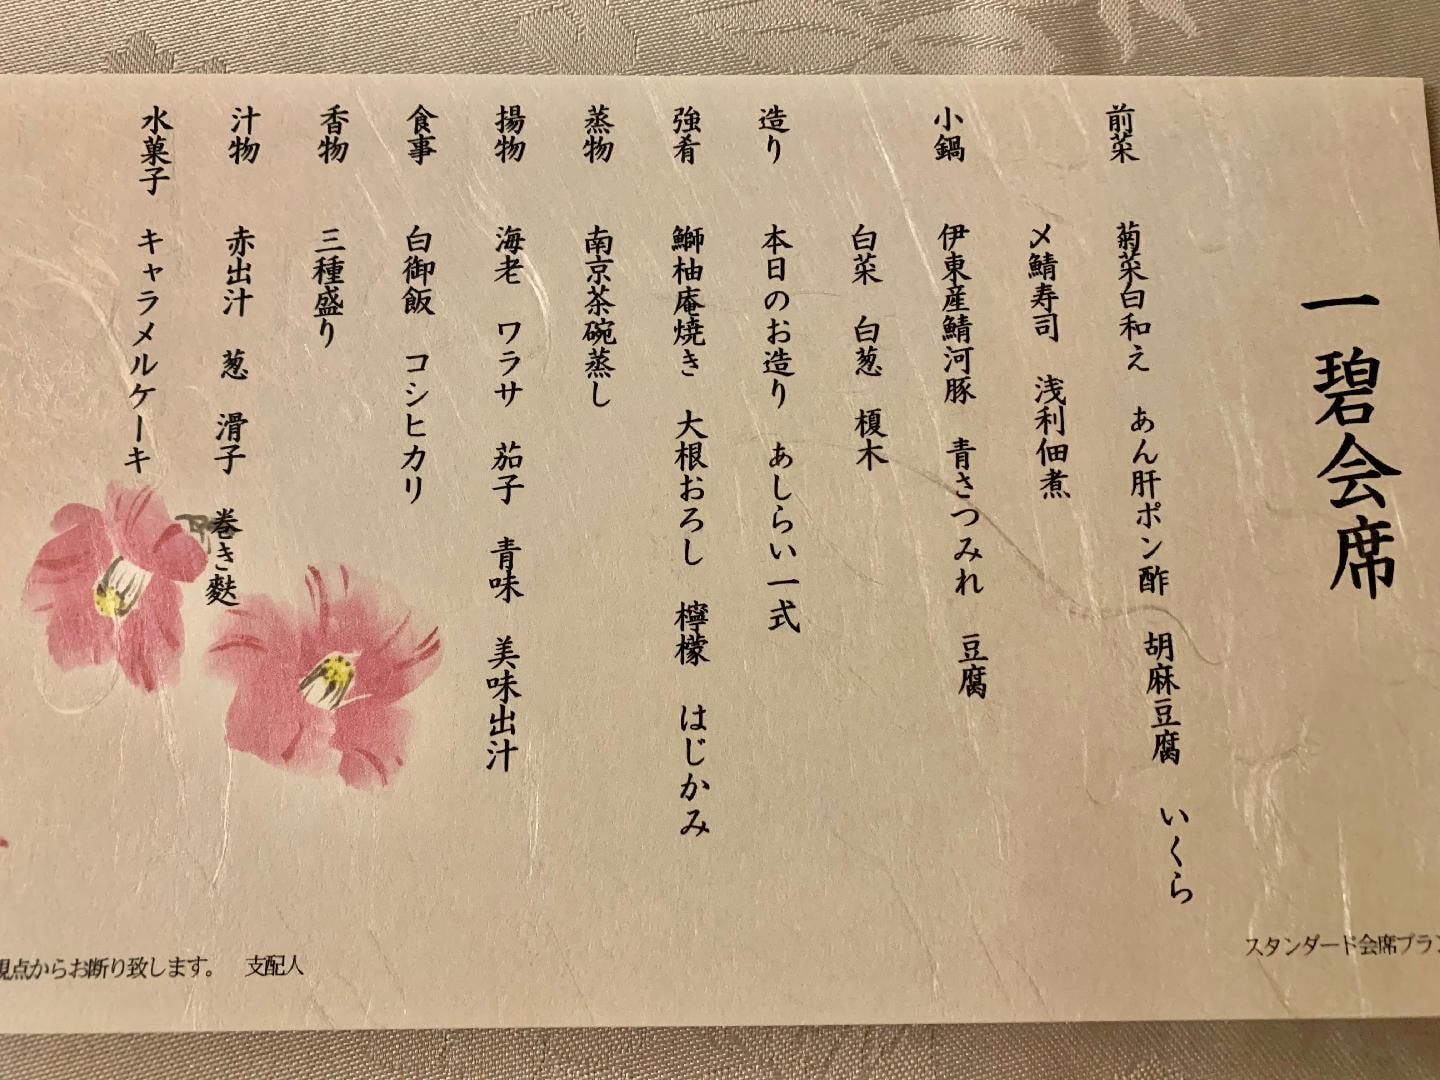 一碧会席
前菜　菊菜白和え　あん肝ポン酢　胡麻豆腐　いくら
〆鯖寿司　浅利佃煮
小鍋　伊東産鯖河豚　青さつみれ　豆腐
白菜　白葱　榎木
造り　本日のお造り　あしらい一式
強肴　鰤柚庵焼き　大根おろし　檸檬　はじかみ
蒸物　南京茶碗蒸し
揚物　海老　ワラサ　茄子　青味　美味出汁
食事　白御飯　コシヒカリ
香物　三種盛り
汁物　赤出汁　葱　滑子　巻き麩
水菓子　キャラメルケーキ
スタンダード会席プラン
観点からお断り致します。　支配人